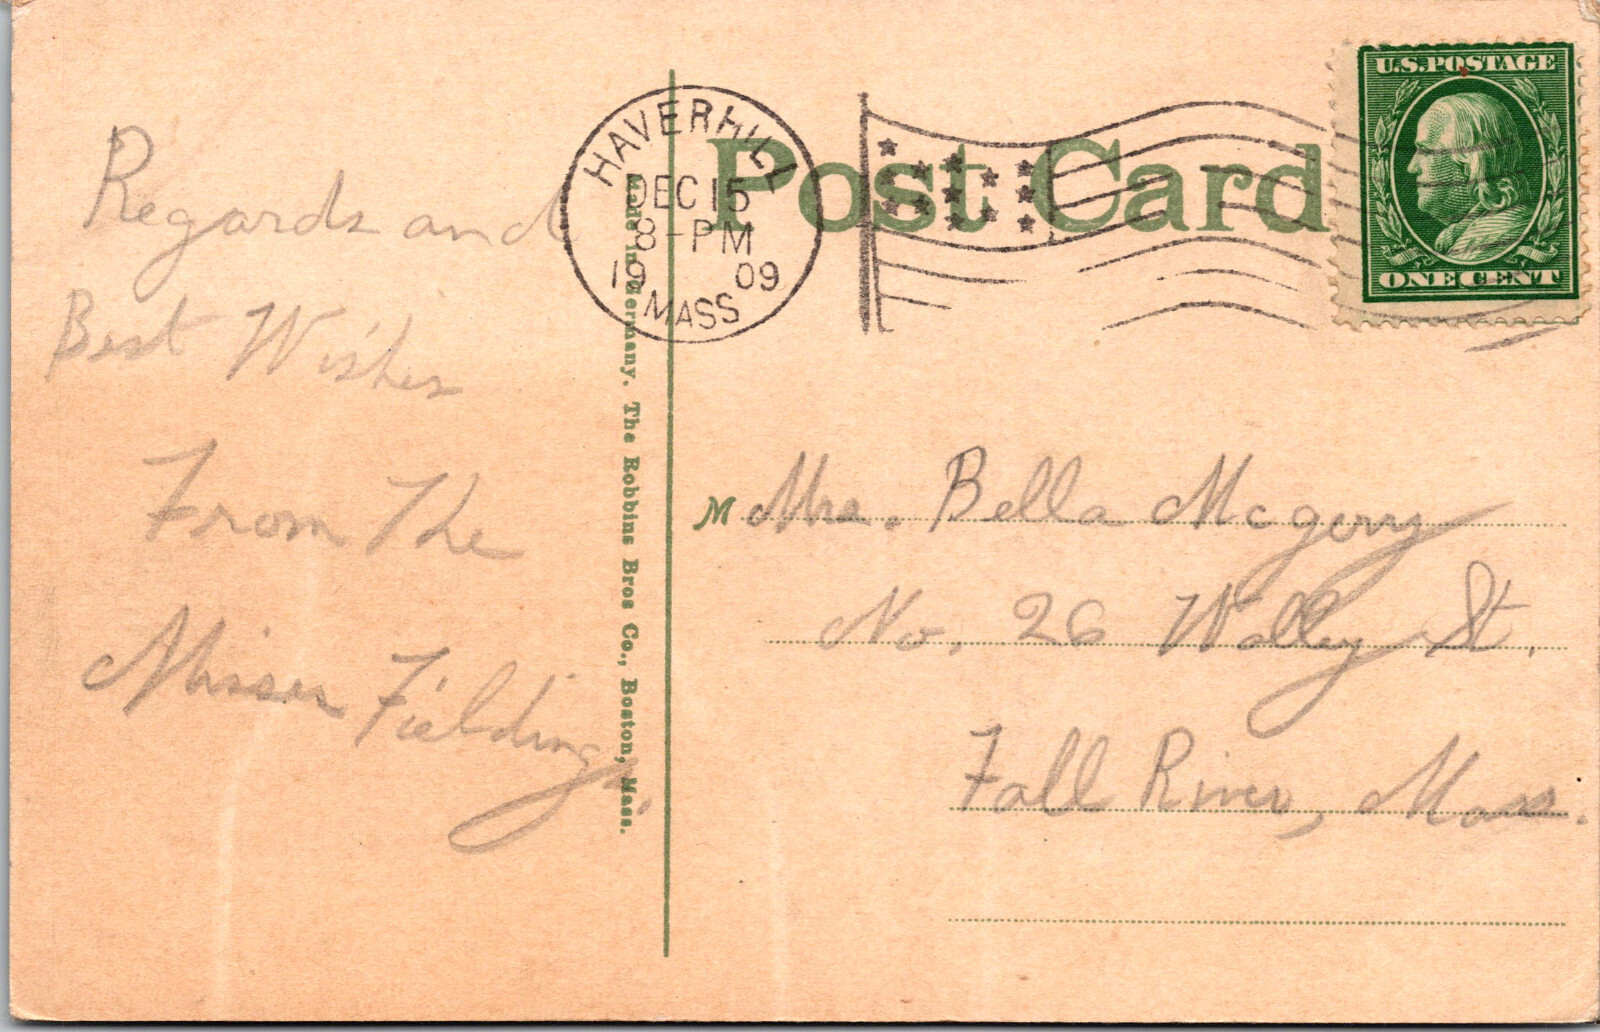 Regards and
Best Wishes
From The
Misses Fielding.
Made in Germany. The Robbins Bros Co., Boston, Mass.
HAVERHILL
DEC 15
8-PM
1909
MASS
Post Card
U.S.POSTAGE
ONE CENT
M Mrs. Bella
No. 26 St.
Fall River, Mass.